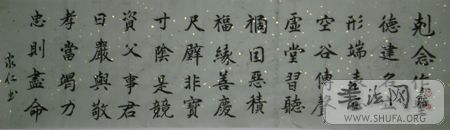 剋念作聖
德建名
形端表
空谷傳聲
虛堂習聽
禍因惡積
福緣善慶
尺璧非寶
寸陰是競
資父事君
曰嚴與敬
孝當竭力
忠則盡命
仁书
书法网
WWW.SHUFA.ORG